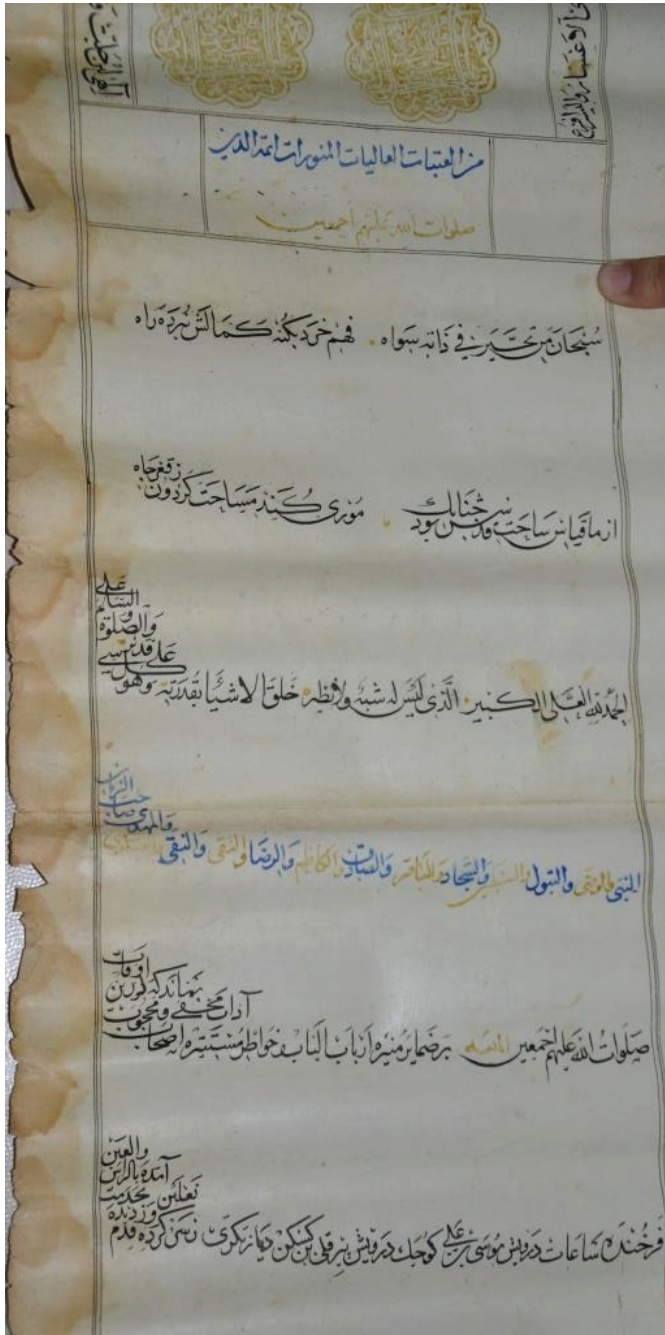 من العتبات العاليات المنورات ائمة الدين
صلوات الله عليهم اجمعين
سُبْحَانَ مَن تَحَيَّرَ في ذَاتِه سِوَاه فهم خرد بكنه كمالش نبرده راه
از ما قیاس ساحت قدست بود چنانک موری کند مساحت گردون ز قعر چاه
الحمد لله العلى الكبير الَّذى لَيْسَ له شبه ولا نظير خلق الاشيا بقدرته وهو على كل شيء قدير والصلوة والسلم على
النبى والوصى والبتول والسبطين والسجاد والباقر والصادق والكاظم والرضا والتقى والنقى والعسكرى والمهدى صاحب الزمان
صلوات الله عليهم اجمعين اما بعد بر ضماير منيره ارباب الباب و خواطر مستنيره اصحاب آداب مخفى و محجوب نماند كه درين اوقات
فرخنده ساعات درويش موسى بن على كوچك درويش پير قلى بن دیار بکری ز سر کرده قدم نعلين بخدمت آمده بالراس والعين